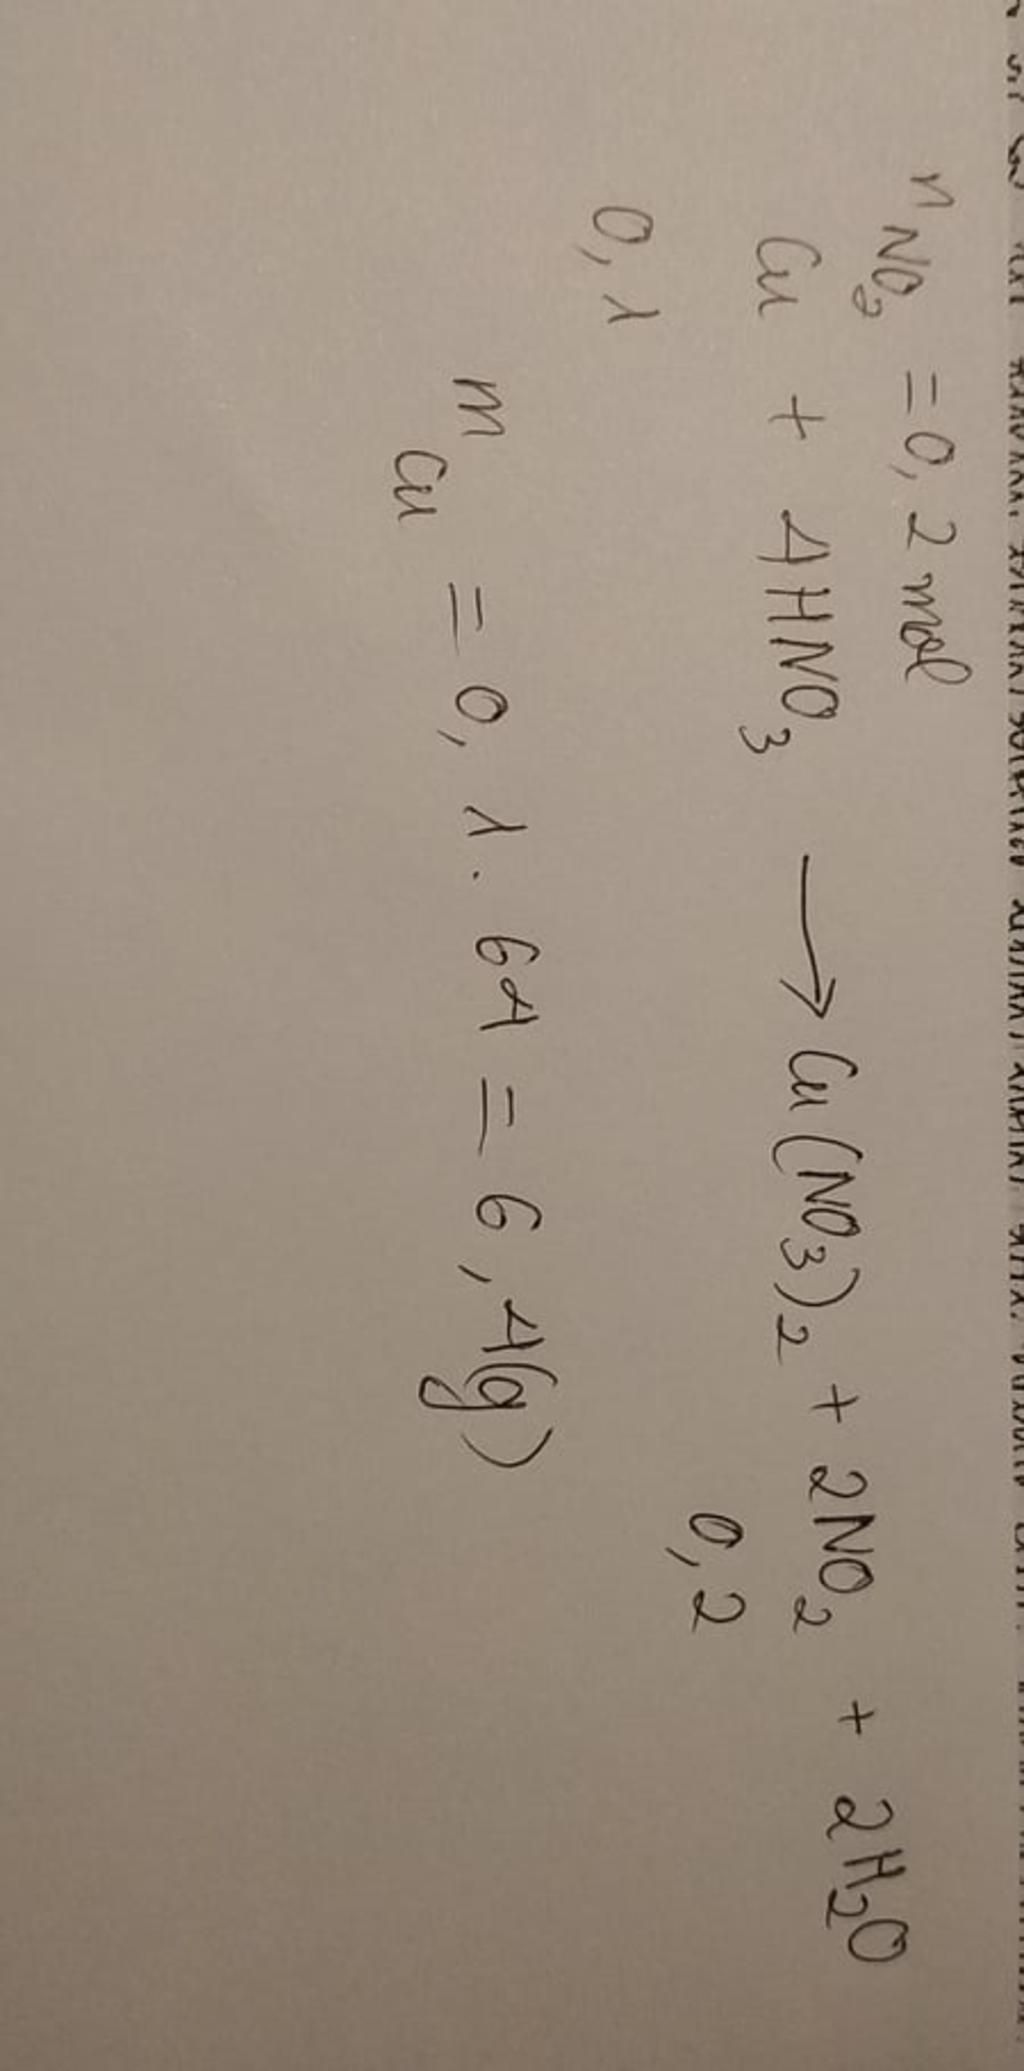 n NO₂ = 0,2 mol
Cu + 4HNO₃ → Cu(NO₃)₂ + 2NO₂ + 2H₂O
0,1 0,2
m Cu = 0,1 . 64 = 6,4(g)